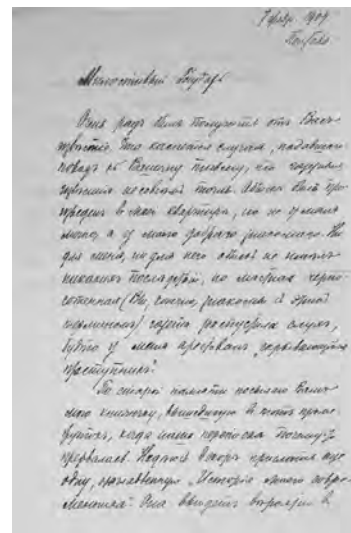 7 февр. 1909
Полтава
Милостивый Государь
Очень радъ былъ получить отъ Васъ
извѣстіе. Что касается случая, подавшаго
поводъ къ Вашему письму, то
не совсѣмъ точно. Обыскъ былъ про
изведенъ въ моей квартирѣ, но не у меня
лично, а у моего добраго знакомаго. Ни
для меня, ни для него обыскъ не имѣлъ
никакихъ послѣдствій, но мѣстная черно
сотенная (Вы, конечно, знакомы съ этимъ
) газета распустила слухъ,
будто у меня арестованъ „скрывающійся
преступникъ“.
По старой памяти посылаю Вамъ
мою книжку, вышедшую въ тотъ проме
жутокъ, когда наша переписка почему-то
прервалась. Надѣюсь вскорѣ прислать еще
одну, озаглавленную „Исторія моего совре
менника“. Она выйдетъ вѣроятно въ